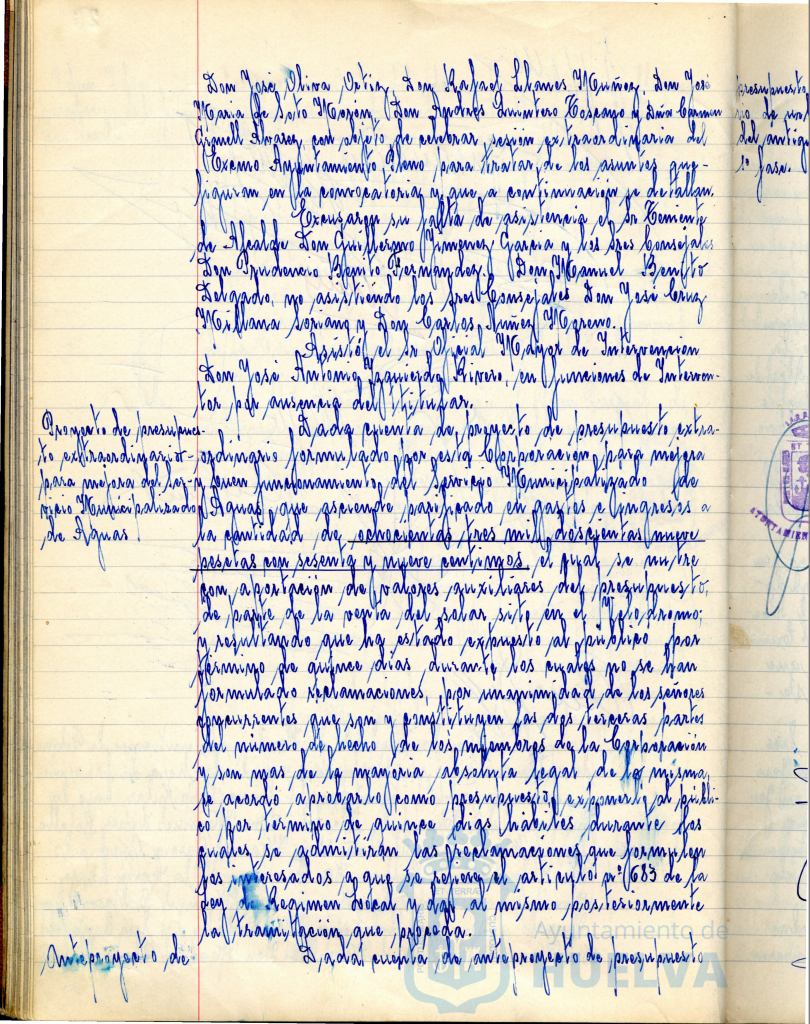 Don José Oliva Ortiz, Don Rafael Llanes Muñoz, Don José
Maria de Soto Morón, Don Andres Quintero Toscano y Dña Carmen
Alvarez, con objeto de celebrar sesión extraordinaria del
Excmo Ayuntamiento Pleno para tratar de los asuntos que
figuran en la convocatoria y que a continuación se detallan.
Excusaron su falta de asistencia el Sr Teniente
de Alcalde Don Guillermo Jimenez Garcia y los Sres Consejales
Don Prudencio Benito Fernandez. Don Manuel Benito
Delgado, no asistiendo los Sres Consejales Don José Cruz
Millana Soriano y Don Carlos Nuñez Moreno.
Asistió el Sr Oficial Mayor de Intervención
Don José Antonio Izquierdo Rivero, en funciones de Interven-
tor por ausencia del titular.
Proyecto de presupues-
to extraordinario
para mejora del ser-
vicio Municipalizado
de Aguas
Dada cuenta de proyecto de presupuesto extra-
ordinario formulado por esta Corporación para mejora
y buen funcionamiento del Servicio Municipalizado de
Aguas, que asciende partificado en gastos e ingresos a
la cantidad de ochocientas tres mil doscientas nueve
pesetas con sesenta y nueve centimos, el cual se nutre
con aportación de valores auxiliares del presupuesto,
de parte de la venta del solar sito en el Velodromo;
y resultando que ha estado expuesto al público por
término de quince dias, durante los cuales no se han
formulado reclamaciones, por unanimidad de los señores
concurrentes que son y constituyen las dos terceras partes
del número de hecho de los miembros de la Corporación
y son mas de la mayoria absoluta legal de la misma,
se acordó aprobarlo como presupuesto, exponerlo al públi-
co por termino de quince dias hábiles durante los
cuales se admitirán las reclamaciones que formulen
los interesados a que se refiere el articulo nº 683 de la
Ley de Regimen Local y dar al mismo posteriormente
la tramitación que proceda.
Anteproyecto de
Dada cuenta de anteproyecto de presupuesto
presupuesto
rio de
del antiguo
1ª fase.
Ayuntamiento de
HUELVA